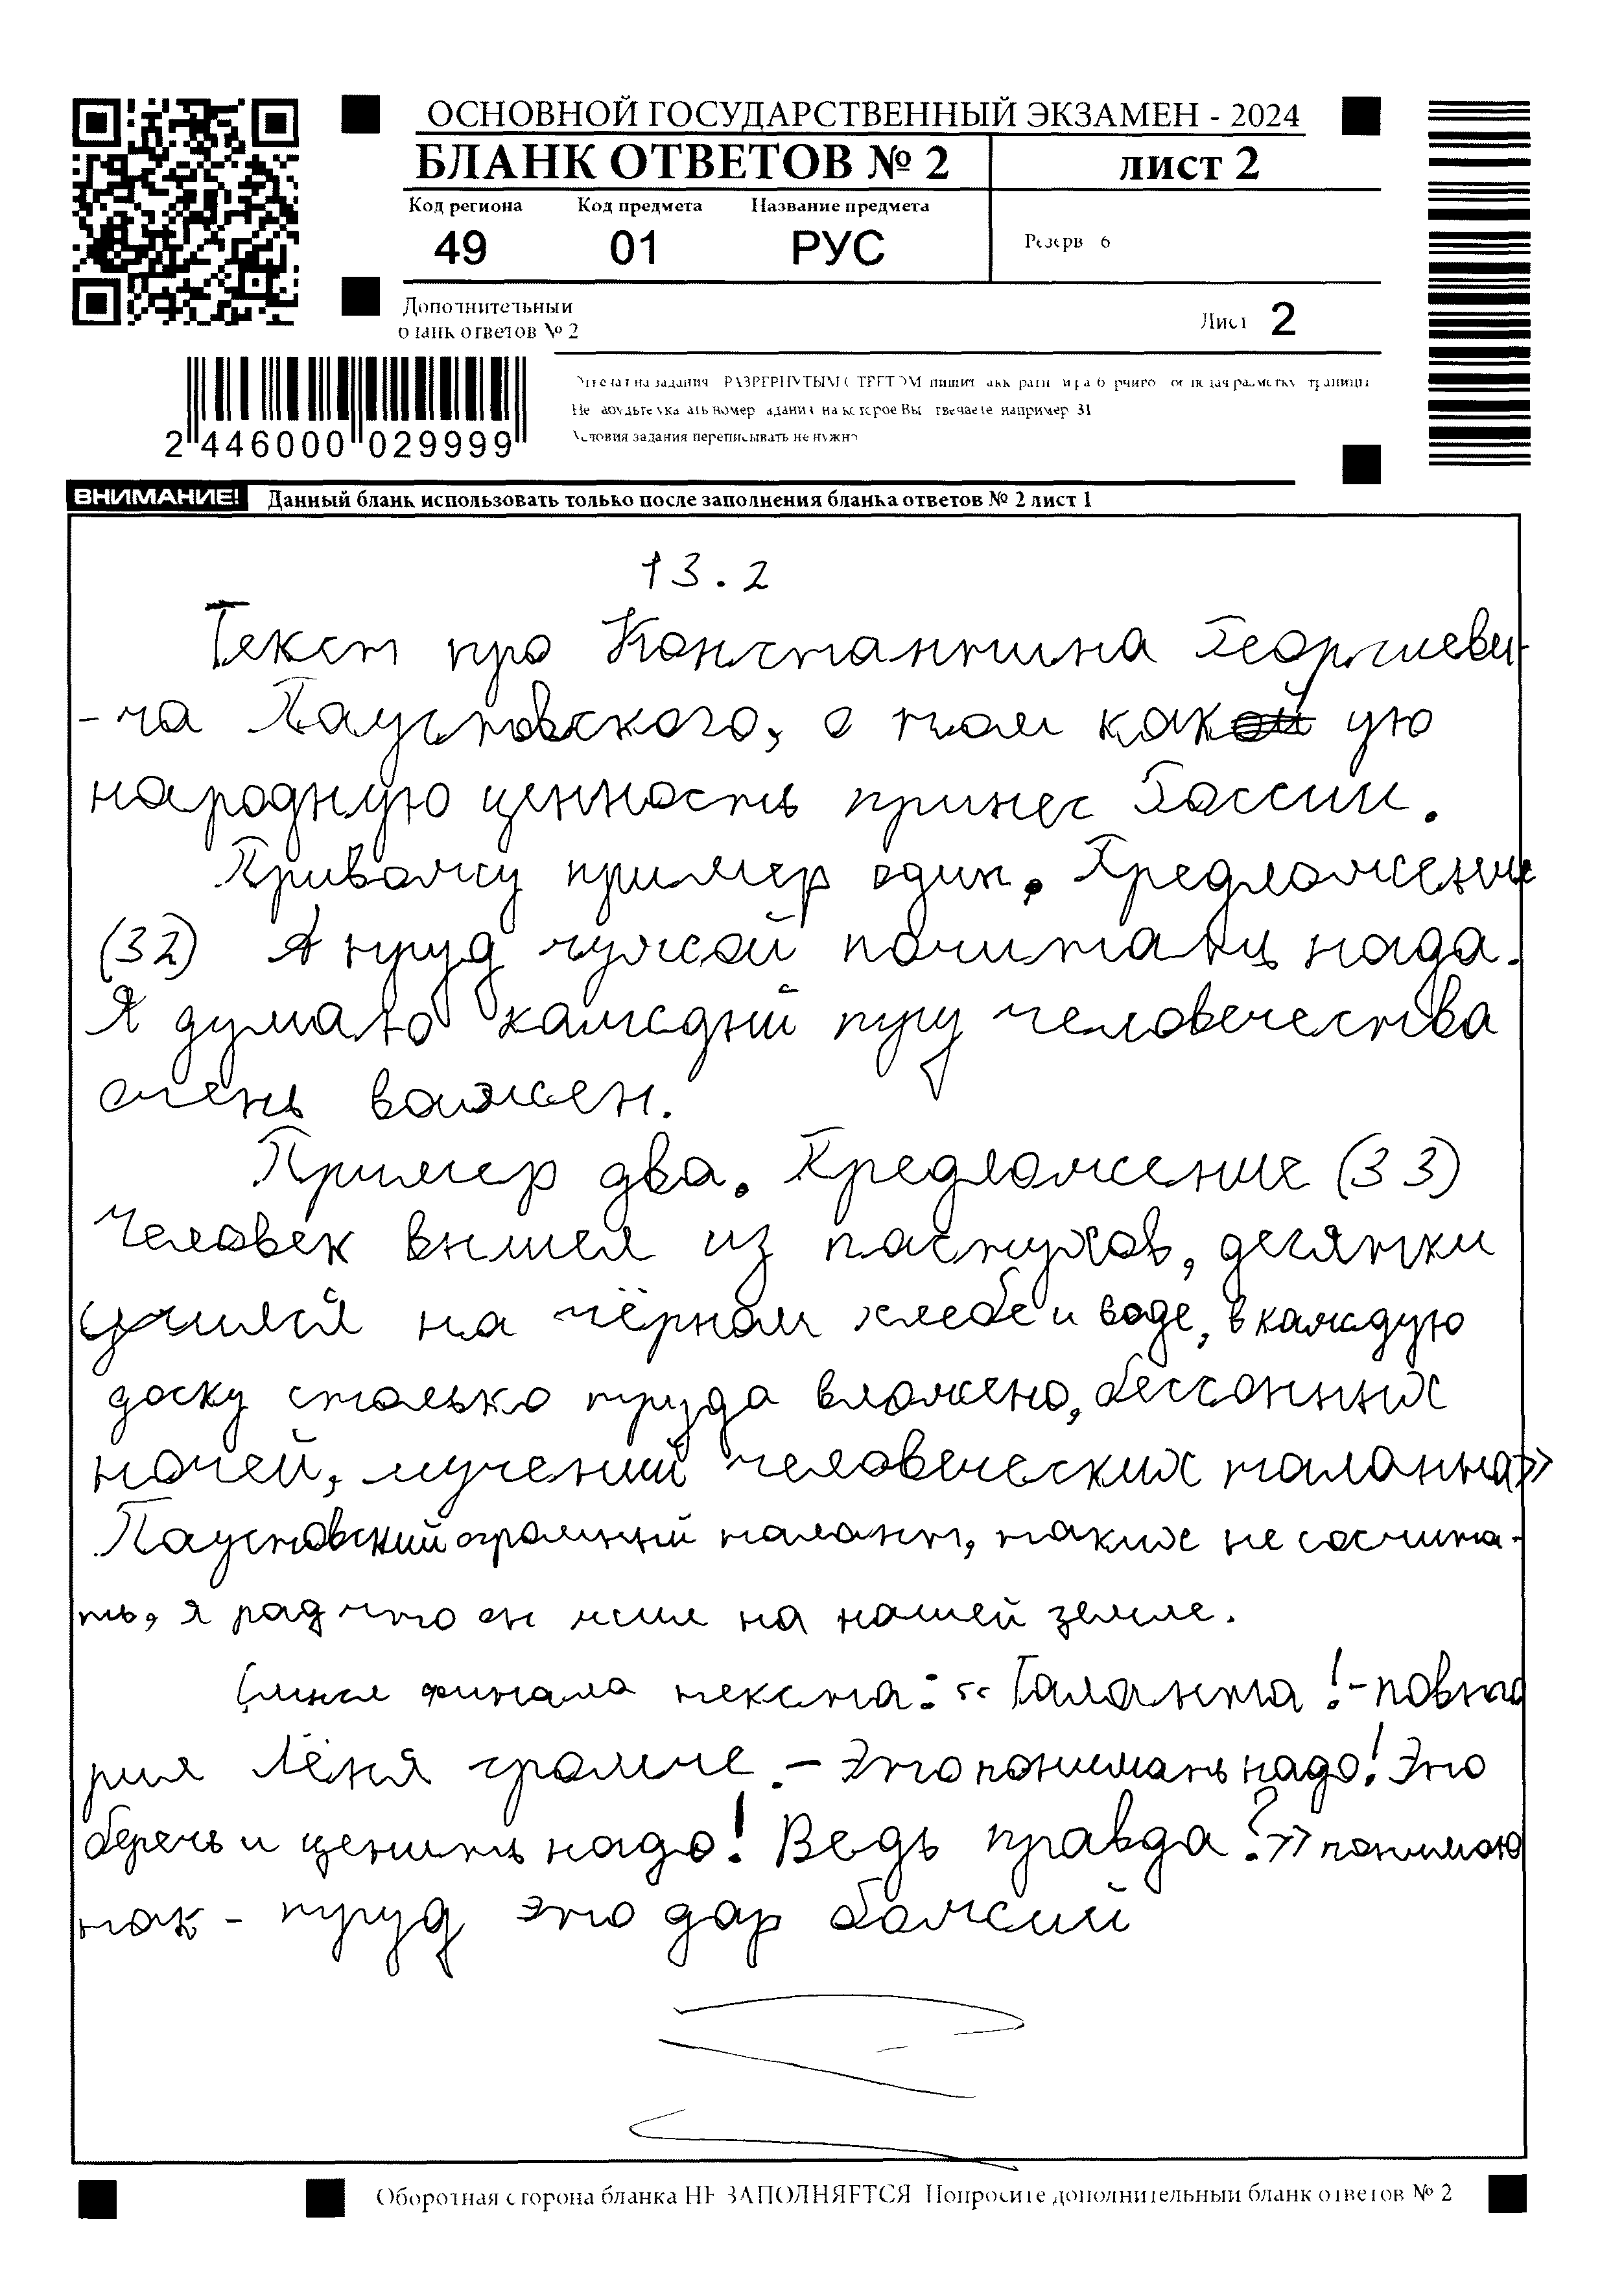 ОСНОВНОЙ ГОСУДАРСТВЕННЫЙ ЭКЗАМЕН - 2024
БЛАНК ОТВЕТОВ № 2 лист 2
Код региона Код предмета Название предмета
49 01 РУС Резерв 6
Дополнительный
бланк ответов № 2
Лист 2
2 446000 029999
Условия задания переписывать не нужно
ВНИМАНИЕ! Данный бланк использовать только после заполнения бланка ответов № 2 лист 1
13.2
Текст про Константина Георгиеви-
-ча Паустовского, о том какую
народную ценность принес России.
Привожу пример один. Предложение
(32) А труд чужой почитать надо.
Я думаю каждый труд человечества
очень важен.
Пример два. Предложение (33)
Человек вышел из пастухов, десятки
учился на чёрном хлебе и воде, в каждую
доску столько труда вложено, бессонных
ночей, мучений человеческих таланта»
Паустовский огромный талант, таких не сосчита-
ть, я рад что он жил на нашей земле.
Смысл финала текста: «Таланта! - повто
рил Лёня громче. - Это понимать надо! Это
беречь и ценить надо! Ведь правда?» понимаю
так - труд это дар божий
Оборотная сторона бланка НЕ ЗАПОЛНЯЕТСЯ Попросите дополнительный бланк ответов № 2